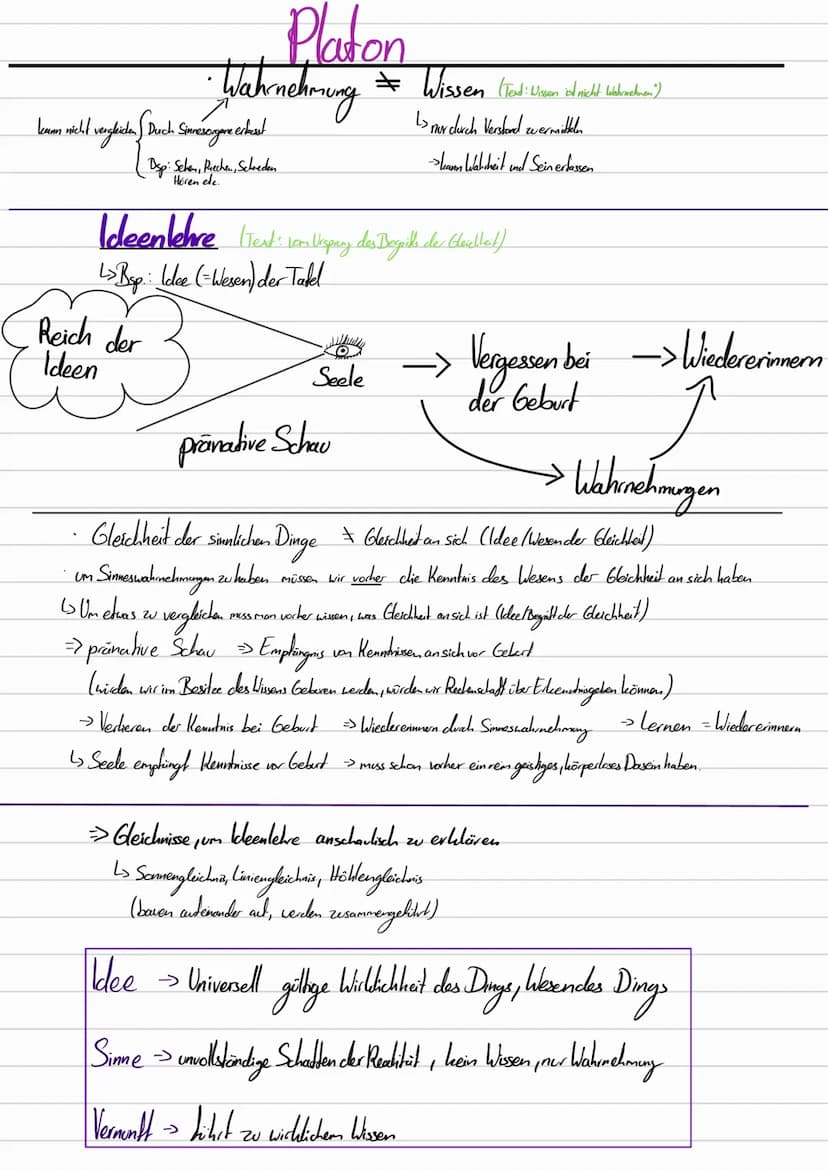 Platon
· Wahrnehmung ≠ Wissen (Text: "Wissen ist nicht Wahrnehmen")
kann nicht vergleichen { Duch Sinnesorgane erfasst ↳ nur durch Verstand zu ermitteln
Bsp: Sehen, Riechen, Schmecken → kann Wahrheit und Sein erfassen
Hören etc.
Ideenlehre (Text: vom Ursprung des Begriffs der Gleichheit)
↳ Bsp.: Idee (=Wesen) der Tafel
Reich der
Ideen
Seele
→ Vergessen bei
der Geburt
→ Wiedererinnern
pränative Schau
Wahrnehmungen
· Gleichheit der sinnlichen Dinge ≠ Gleichheit an sich (Idee/Wesen der Gleichheit)
· um Sinneswahrnehmungen zu haben müssen wir vorher die Kenntnis des Wesens der Gleichheit an sich haben
↳ Um etwas zu vergleichen muss man vorher wissen, was Gleichheit an sich ist (Idee/Begriff der Gleichheit)
⇒ pränative Schau ⇒ Empfängnis von Kenntnissen an sich vor Geburt
(würden wir im Besitze des Wissens Geboren werden, würden wir Rechenschaft über Erkenntnis geben können)
→ Verlieren der Kenntnis bei Geburt ⇒ Wiedererinnern durch Sinneswahrnehmung → Lernen = Wiedererinnern
↳ Seele empfängt Kenntnisse vor Geburt → muss schon vorher ein rein geistiges, körperloses Dasein haben.
⇒ Gleichnisse, um Ideenlehre anschaulich zu erklären
↳ Sonnengleichnis, Liniengleichnis, Höhlengleichnis
(bauen aufeinander auf, werden zusammengeführt)
Idee → Universell gültige Wirklichkeit des Dings, Wesen des Dings
Sinne → unvollständige Schatten der Realität, kein Wissen, nur Wahrnehmung
Vernunft → führt zu wirklichem Wissen